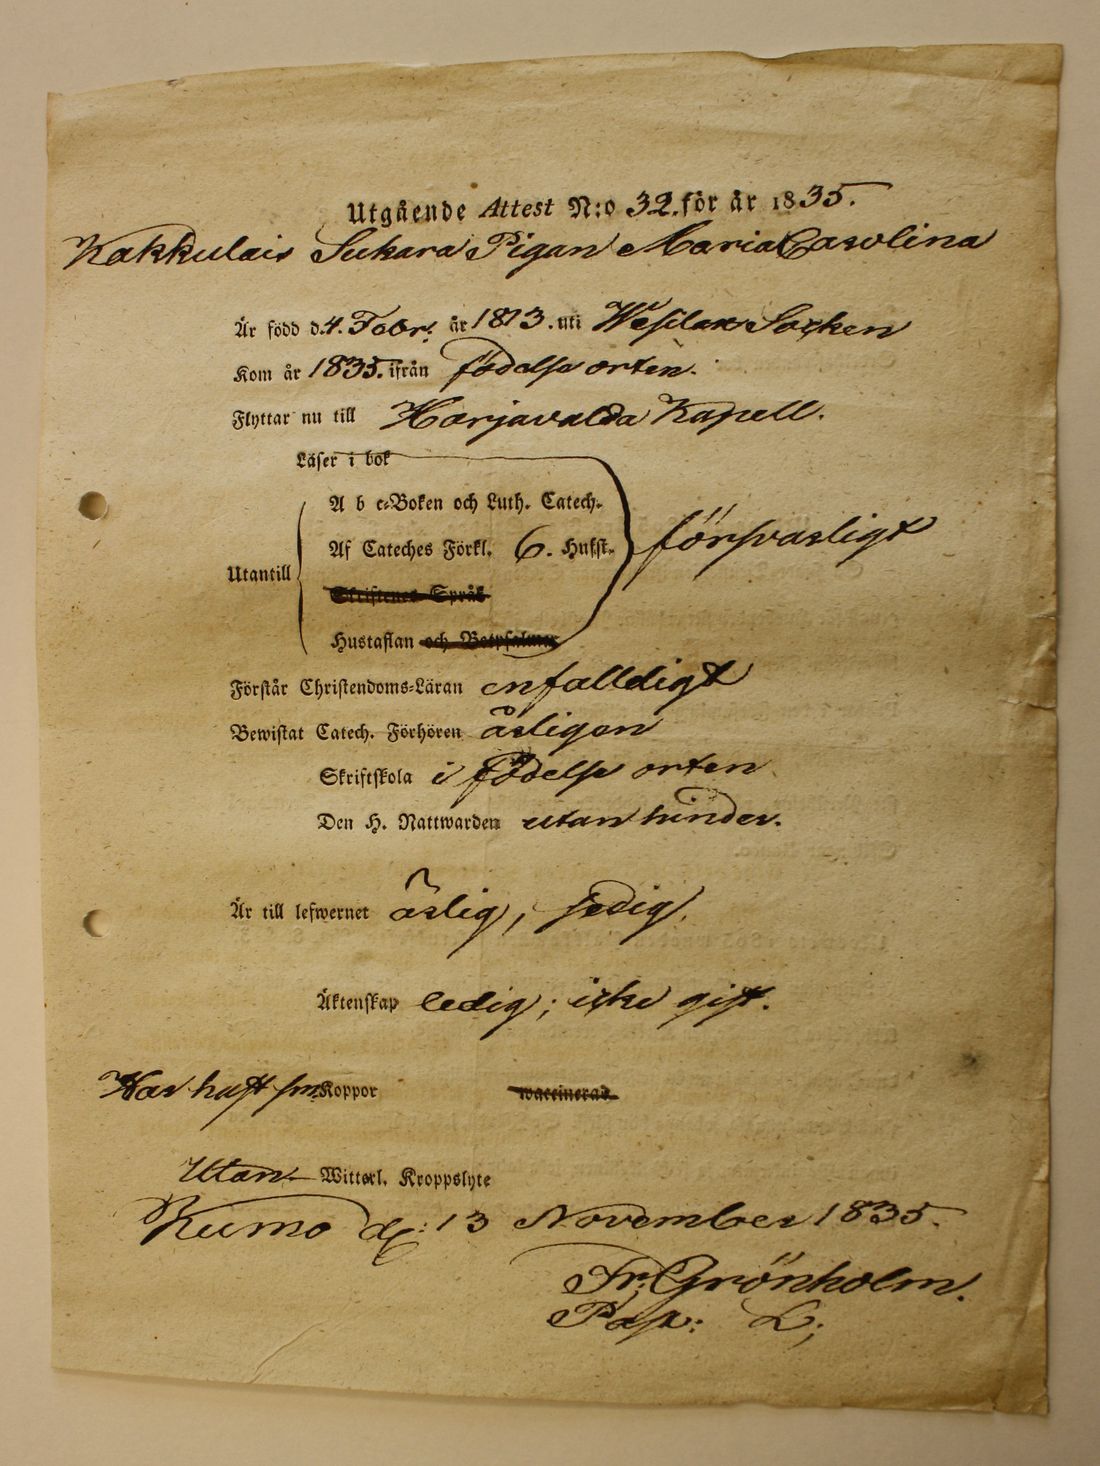 Utgående Attest N:o 32. för år 1835.
Kakkulais Sukara Pigan Maria Carolina
Är född d. 4. Febr: år 1813. uti Wesilax Socken
Kom år 1835. ifrån födelse orten.
Flyttar nu till Harjavalda Kapell.
Läser i bok
A b c-Boken och Luth. Catech.
Af Cateches Förkl. 6. Hufst. försvarligt
Utantill
Skriftenes Språk
Hustaflan och Botpsalmer
Förstår Christendoms-Läran enfalldigt
Bewistat Catech. Förhören årligen
Skriftskola i födelse orten
Den H. Nattwarden utan hinder.
Är till lefwernet ärlig, sedig,
Äktenskap ledig; icke gift.
Har haft sm: Koppor waccinerad
Utan Witterl. Kroppslyte
Kumo d: 13 November 1835.
Fr: Grönholm.
Past: L;